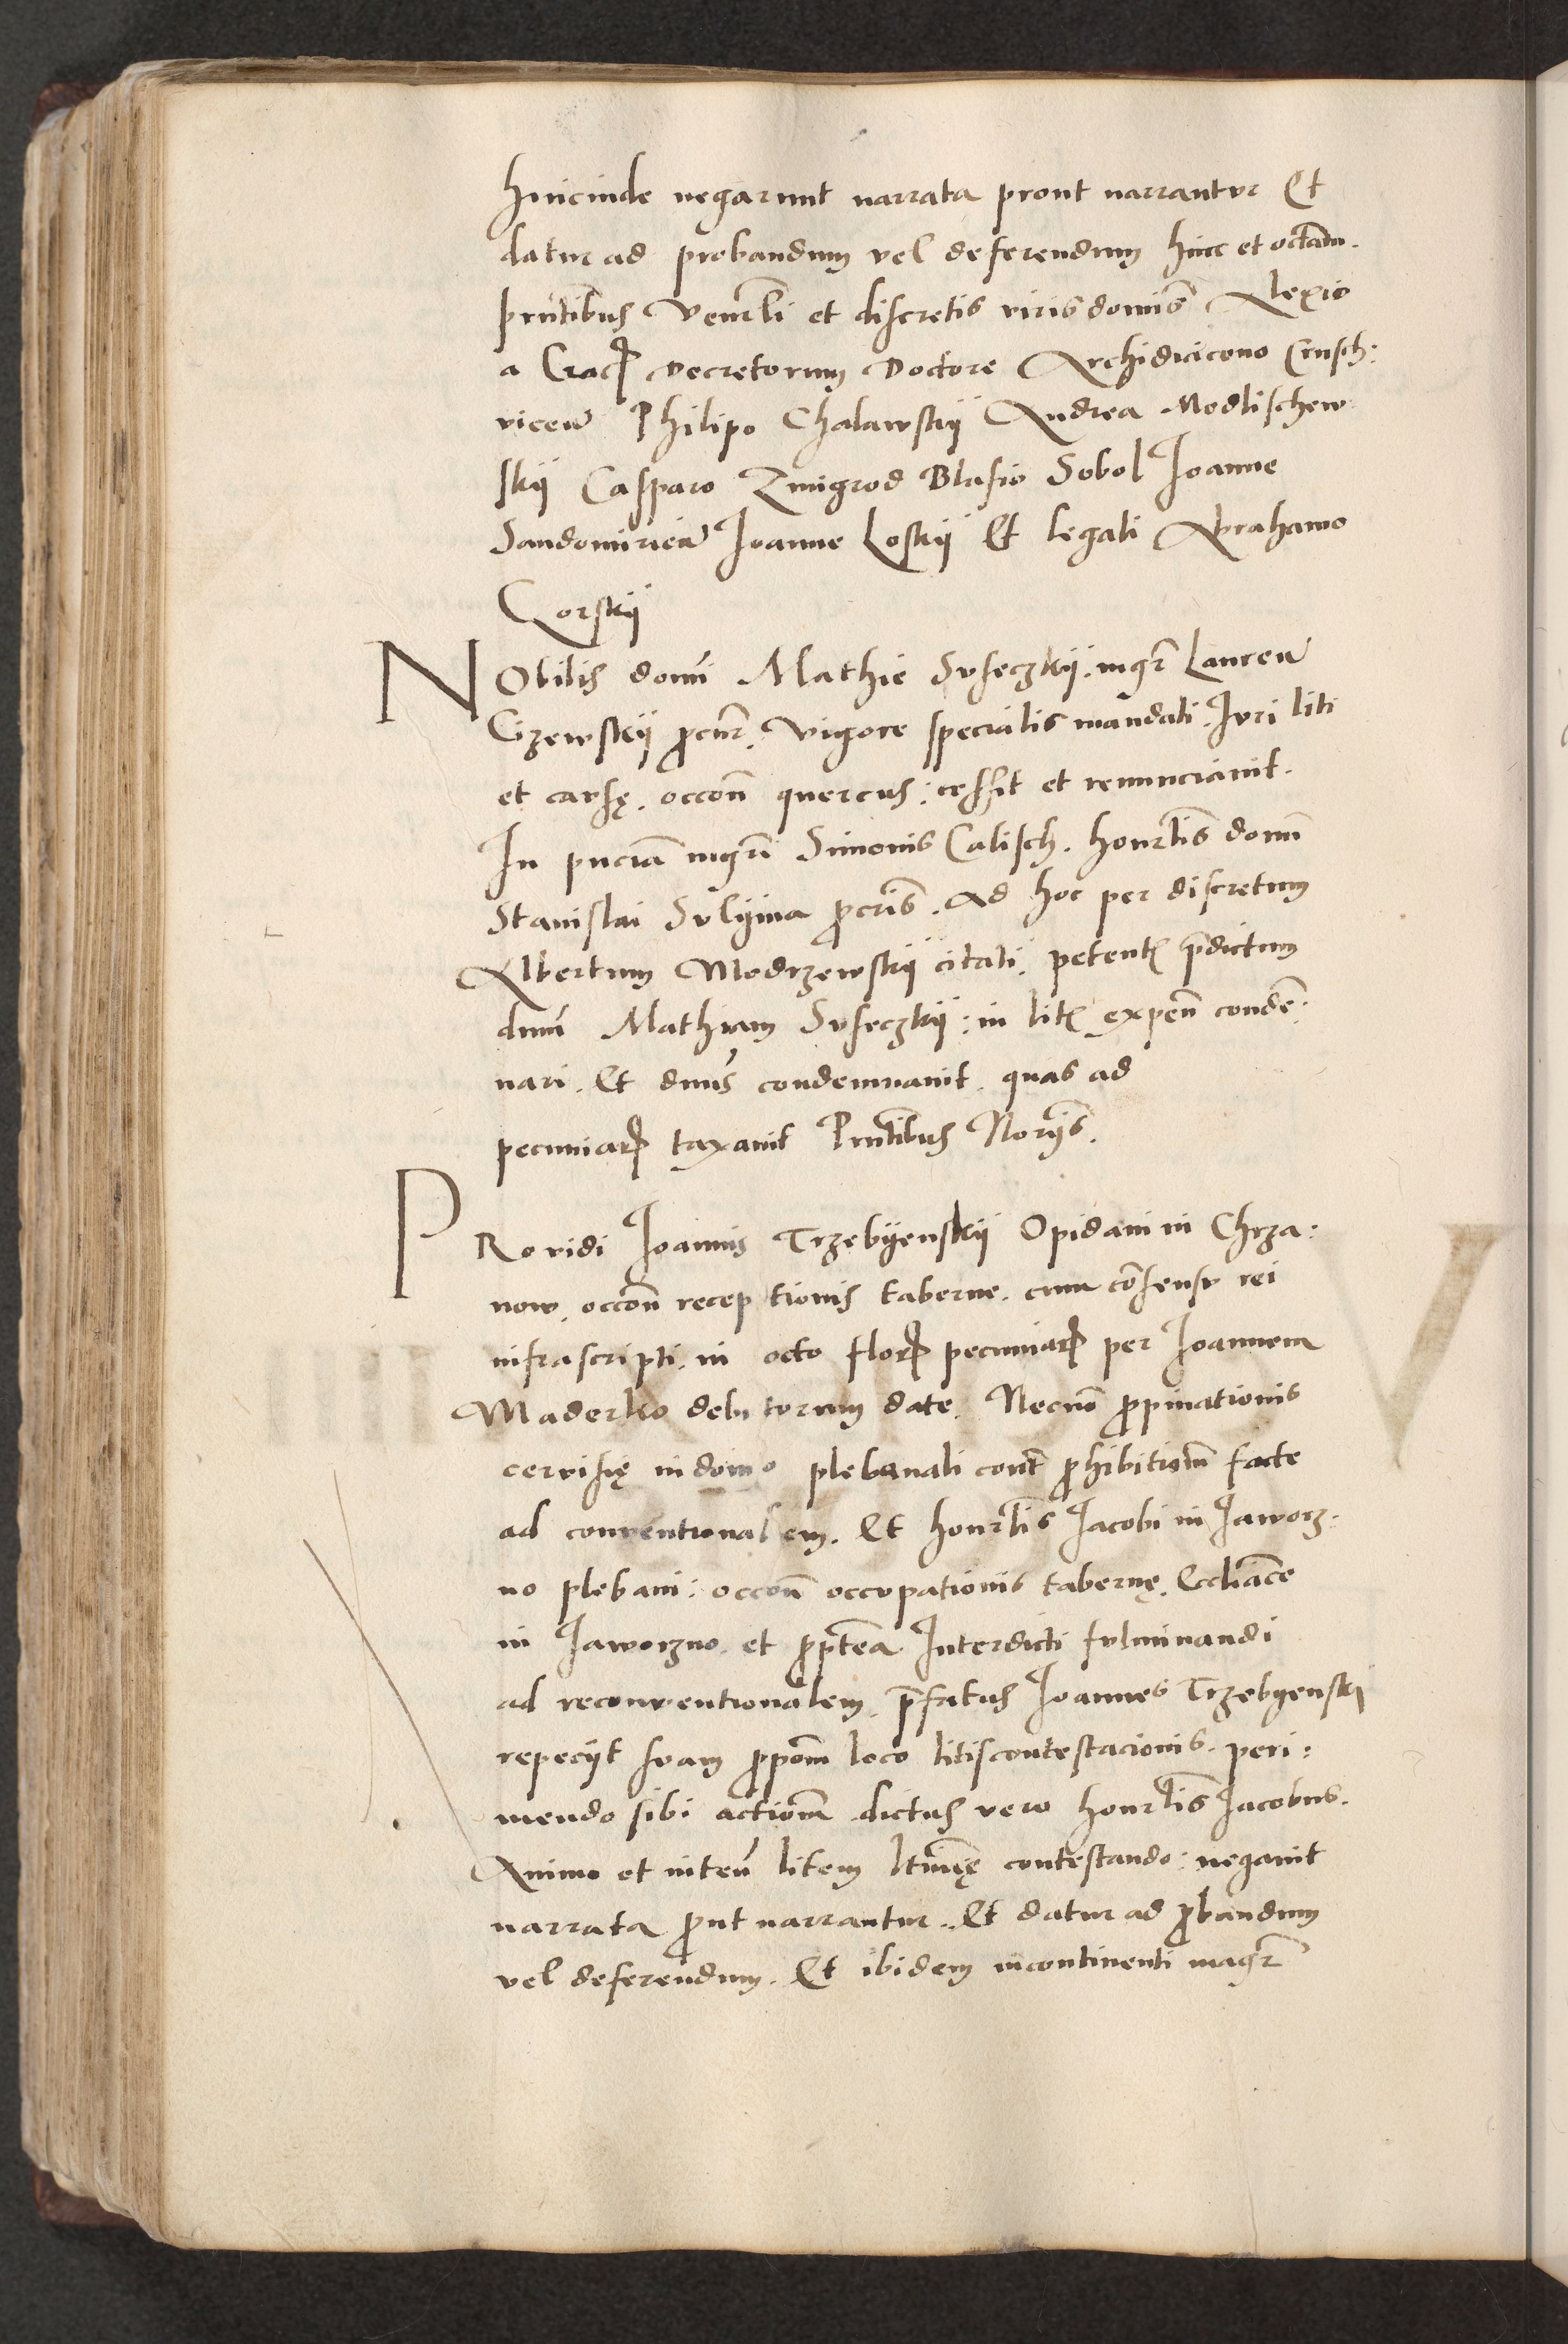 hincinde negarunt narrata prout narrantvr Et
datur ad probandum vel deferendum hinc et octam.
prntibus Venrli et discretis viris domis Alexio
a Crac Decretorum Doctore Archidicicono Crusch:
vicen Philipo Chalawskij Andrea Modlischew
skij Casparo Zmigrod Blasio Sobol Joanne
Sandomirien Joanne Loskij Et legali Abrahamo
Gorskij
NObilis domi Mathie Svseczkij. mgr Lauren
Gizewskij procur. Vigore specialis mandati. Jvri liti
et cavsę. occon quercus: cessit et renunciavit.
In pnciam mgri Simonis Calisch. honrlis domi
Stanislai Svlijma procris. Ad hoc per discretum
Albertum Modrzewskij citati. petent predictum
dnum Mathiam Svseczkij: in lit expen conde:
nari. Et dnus condemnavit. quas ad
pecuniar taxavit Prntibus Norijs.
PRovidi Joannis Trzebijenskij Opidani in Chrza:
now. occon receptionis taberne. cum consensv rei
infrascripti. in octo flor pecuniar per Joannem
Maderko debitorum date. Necno propinationis
cervisię in domo plebanali cont prohibitiom facte
ad conventionalem. Et honrlis Jacobi in Jaworz:
no plebani: occon occvpationis tabernę. Eccliasce
in Jaworzno. et proptea Interdicti fvlminandi
ad reconventionalem. prefatus Joannes Trzebyenskj
repeciit svam propom loco litiscontestacionis. peri:
mendo sibi actiom dictus vero honrlis Jacobus.
Animo et inten litem ltimę contestando: negavit
narrata prout narrantur. Et datur ad probandum
vel deferendum. Et ibidem incontinenti magr